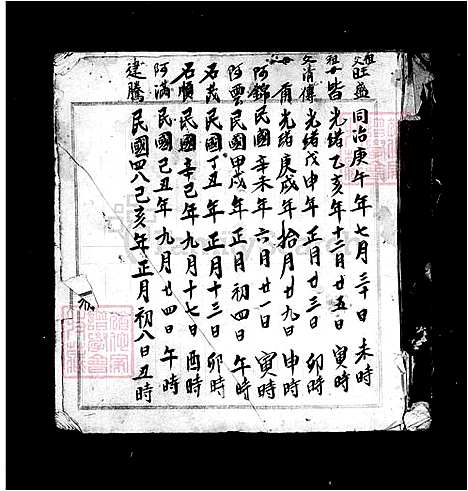 祖父旺盛 同治庚午年七月三十日未時
祖母皆 光緒乙亥年十二月廿五日寅時
父清傳 光緒戊申年正月廿三日卯時
光緒庚戌年拾月廿九日申時
阿錦 民國辛未年六月廿一日寅時
阿雲 民國甲戌年正月初四日午時
石茂 民國丁丑年正月十三日卯時
石順 民國辛巳年九月十七日酉時
阿滿 民國己丑年九月廿四日午時
建騰 民國四八己亥年正月初八日丑時